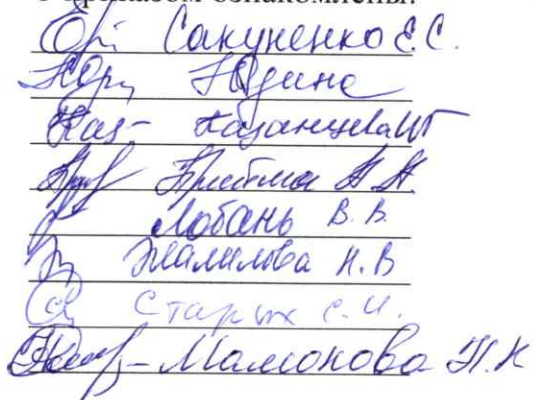 С приказом ознакомлены:
Сакуненко Е.С.
Юдина
Казанцева
Лобань В. В.
Жалилова Н. В
Старых С. И.
Мамонова Т. Н